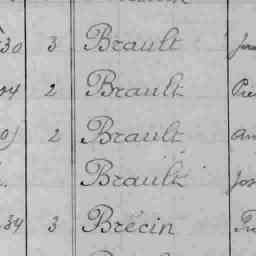 30 3 Brault
04 2 Brault
0) 2 Brault
Brault Jos
34 3 Brécin